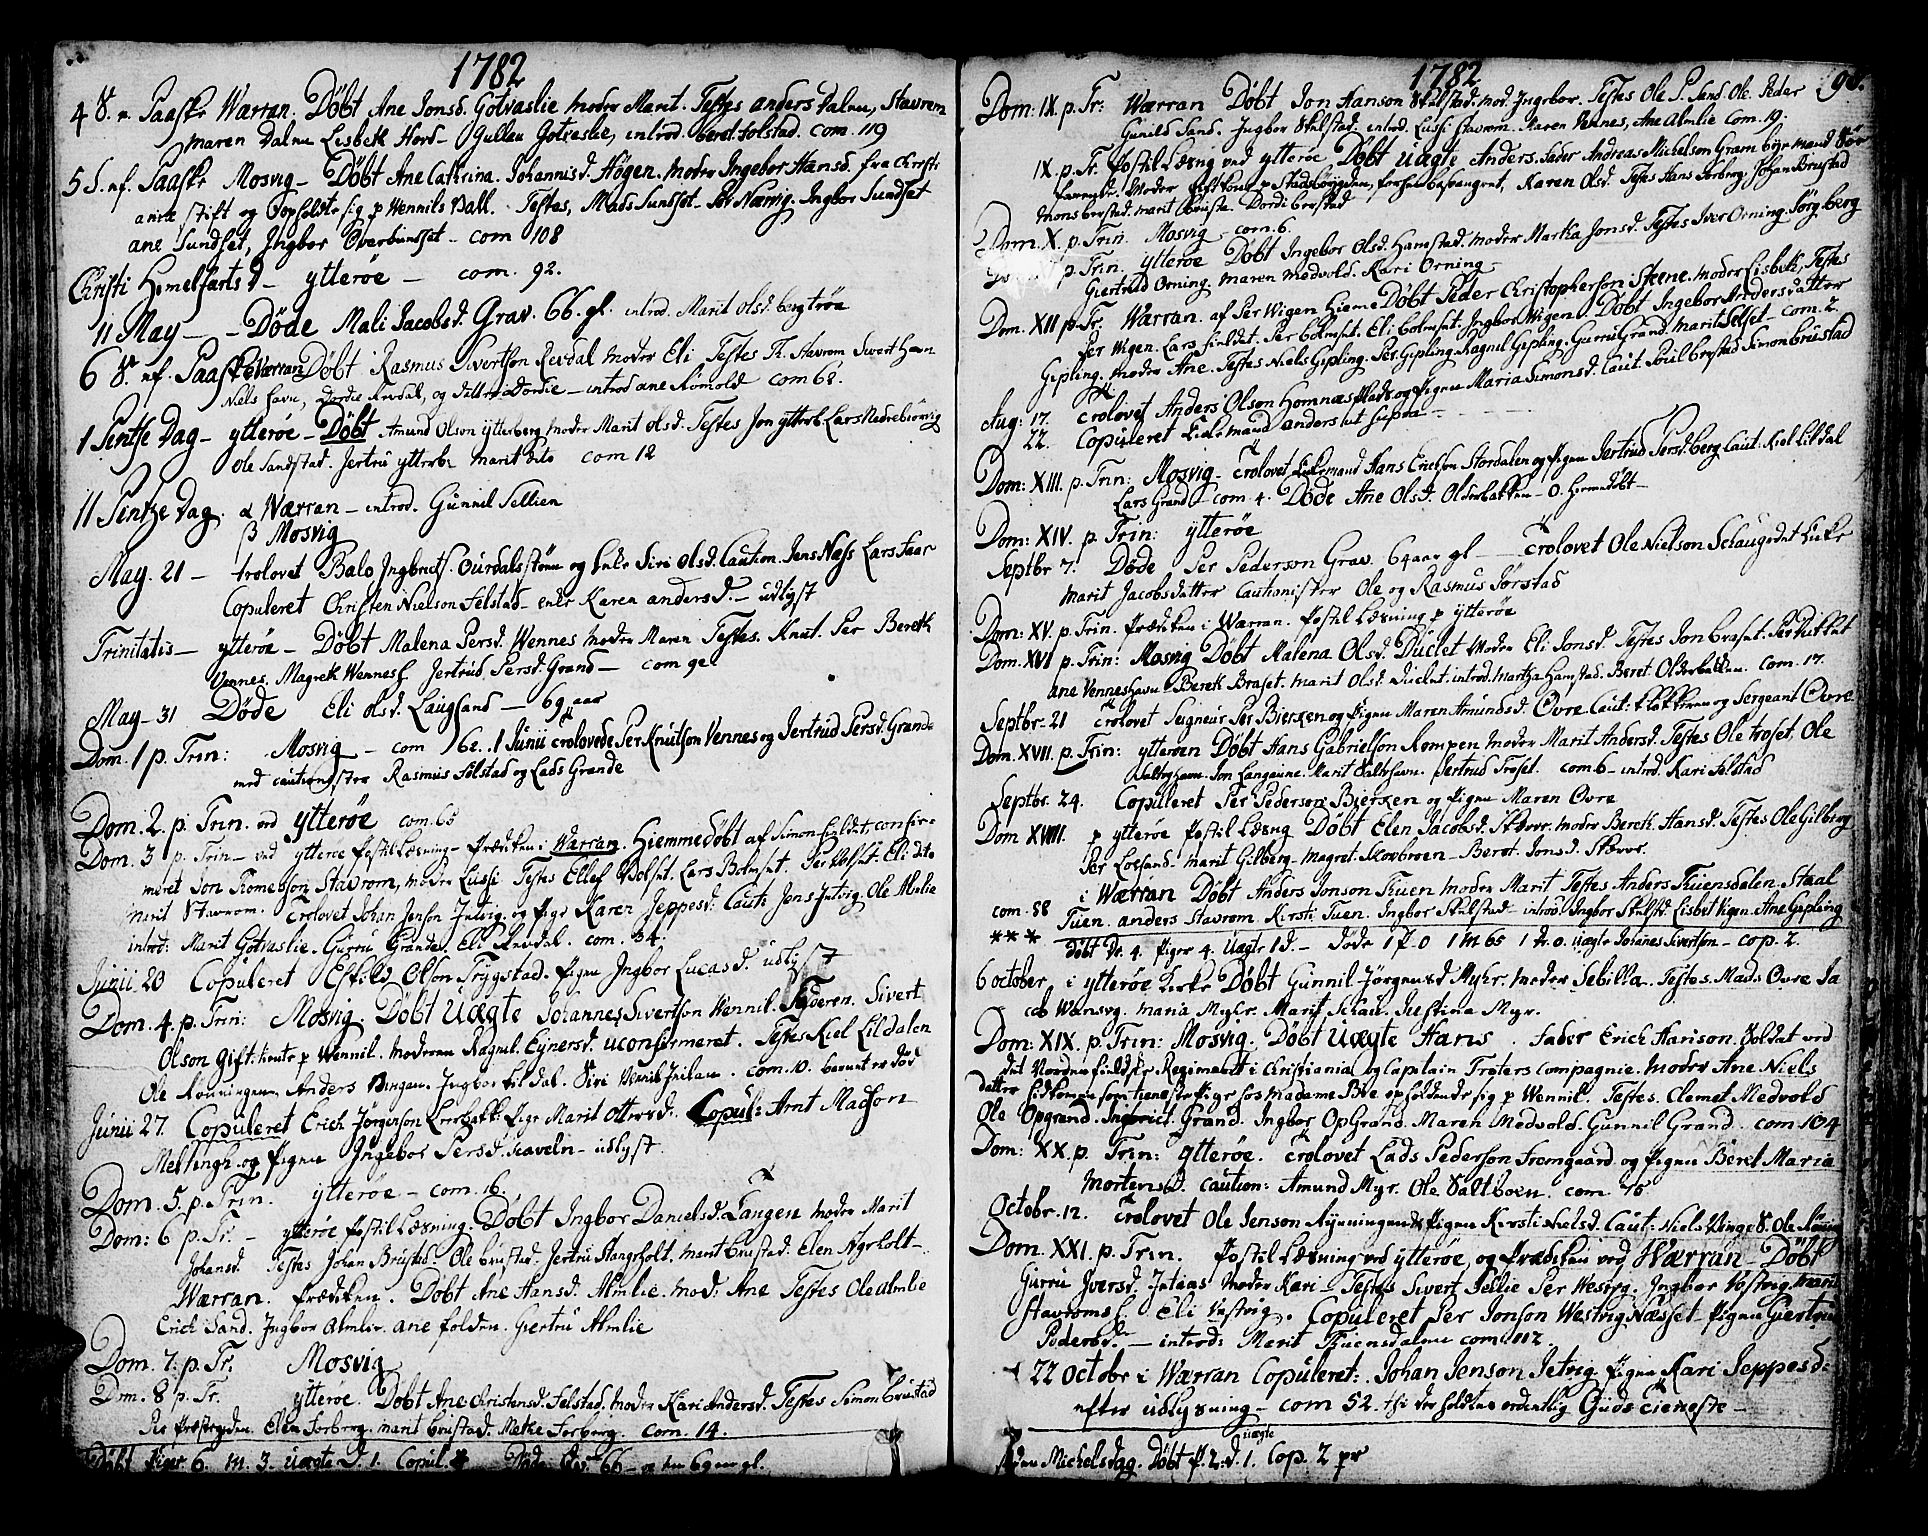 1782
4 S. p. Paaske Wærran. Døbt Ane Jonsd. Gotvaslie moder Marit. Testes anders Dalen, Stavrem
maren Dalen Lisbeth Hord - Gullau Gotvaslie, introd. beret Folstad. com. 119
5 S. ef. Paaske Mosvig - Døbt Ane Cathrina. Johannisd. Högen. moder Ingebor Hansd. fra Christi
ania stift og Opholdte sig p Wennils Vall. Testes, Mads Sundset. Per Nærvig. Ingbor Sundset
ane Sundset, Ingbor Overbunset - com 108
Christi Hemelfarts d - ytterøe - com. 92.
11 May - - Døde Mali Jacobsd. Grav. 66. gl. introd. Marit Olsd. bergtrøa
6 S. ef. Paaske Wærran Døbt Rasmus Sivertson Revdal moder Eli Testes Th. Stavrom Sivert Havn
Niels Havn, Dordie Revdal, og datter Dordie - introd ane Romold com 68.
1 Pentse Dag - ytterøe - Døbt Amund Olson ytterberg moder Marit olsd. Testes Jon ytterb. Lars Nedrebiörvig
Ole Sandstad. Jertru ytterb. marit dito com 12
11 Pentse Dag. α Wærran - introd. Gunnil Sellien
β Mosvig
May. 21 - trolovet Balo Ingbretf. Ourdalsstöun og Enke Siri Olsd. Caution. Jens Næss Lars Saar
Copuleret Christen Nielson Felstad - enke Karen andersd. - udlyst
Trinitatis - ytterøe - Døbt Malena Persd. Wennes moder Maren Testes. Knut. Per Bereth
Vennes. Magreth Wennesf Jertrud Persd. Grand - com 90
May - 31 Døde Eli olsd. Laugsand - 69 aar
Dom. 1 p. Trin: Mosvig - com 62. 1 Junii trolovede Per Knutson Vennes og Jertrud Persd. Grande
med cautionister Rasmus Folstad og Lads Grande
Dom. 2. p. Trin. ved ytterøe com. 65
Dom. 3 p. Trin - ved ytterøe Postil Læsning - Prædiken i Wærran. Hiemmedöbt af Simon Fieldet, confir-
meret Jon Tomesson Stavrom, moder Lussi Testes Ellef Bolset. Lars Bolmset. Per Volset. Eli dito
Marit Stavrom. Trolovet Johan Jenson Jutvig, og Pige Karen Jeppesd: Caut: Jens Jutvig Ole Almlie
introd: Marit Gotvaslie. Gurru Grande. Eli Revdal. com. 34.
Junii 20 Copuleret Eskild Olson Trygstad. Pigen Ingbor Lucasd. udlyst
Dom. 4. p. Trin: Mosvig. Døbt Uægte Johannes Sivertson Wennil. Faderen. Sivert
Olson gift: tiente p Wennil. Moderen Ragnil. Ejnersd. uconfirmeret. Testes Kiel Lildalen
Ole Rönningen, Anders Vingen. Ingbor Lildal. Siri Vennil Inilau. com. 10. barnet er död
Junii 27. Copuleret Erich Jörgenson Leerbakk. Pige Marit Ottersd. Copul: Arnt Madson
Mettingh og Pigen Ingebor Persd. Saveln - udlyst.
Dom. 5. p. Trin. ytterøe - com. 16.
Dom: 6 p. Tr. - ytterøe Postil Læsning. Døbt Ingbor Danielsd. Langen moder Marit
Johansd Testes Johan Brustad. Ole brustad. Jertru Stangholt. marit brustad. Elen Nyrholt -
Wærran. Prædiken. Døbt Ane Hansd. Almlie. mod: Ane Testes Ole Almlie
Erich Sand. Ingbor Almlie. ane folden. Giertru Almlie
Dom. 7: p. Tr. Mosvig
Dom. 8 p. Tr. ytterøe. Døbt Ane Christensd. Felstad, moder Kari Andersd. Testes Simon brustad
Per Præstegden. Elen Forberg. marit brustad. Methe Forberg. com. 14.
Döbt Piger 6. M. 3. Uægte D. 1. Copul.
1782 98.
Dom: IX p. Tr: Wærran Døbt Jon Hanson Skilstad: mod. Ingebor. Testes Ole P. Sand. Ole. Peder
Gunild Sand. Ingbor Skilstad. introd. Lussi Stavrom. Maren Vennes, Ane Almlie Com. 19.
IX. p. Tr. Postil Læsnig ved ytterøe, Døbt Uægte Anders. Fader Andreas Michelson Gram
Karen Olsd. Testes Hans Forberg. Johan Brustad
Mons brustad. marit Brustad. Dordi brustad
Dom. X. p. Trin. Mosvig - com. 6.
p. Trin. ytterøe Døbt Ingebor Olsd. Hamstad. moder Martha Jonsd. Testes Iver Orning. Sörg. berg
Giertrud Orning. maren medvold. Kari Orning -
Dom. XII p. Tr. Wærran. af Per Wigen Hieme Døbt Peder Christopherson Steene. moder Lisbeth, Testes
Per Wigen. Lars Fieldet. Per bolmset. Eli bolmset. Ingbor Wigen. Döbt Ingebor Andersdatter
Gipling. moder Ane. Testes Niels Gipling. Per. Gipling. Ragnil Gipling. Gurru Grand. Marit Selset - com. 2.
Aug: 17. Trolovet Anders Olson Homnæs Plads og Pigen Maria Simonsd. Caut. Poul brustad Simon brustad
22. Copuleret Enkemand anders ut supra - - - -
Dom: XIII. p. Trin: Mosvig - Trolovet Enkemand Hans Erichson Stordalen og Pigen Jertrud Persd. berg Caut. Kiel Lildal
Lars Grand - com. 4. Døde Ane Olsd. Olderbakken - 0. hiemedöbt -
Dom: XIV. p. Trin: ytterøe
Septbr 7. Døde Per Pederson Grav. 64 aar gl - Trolovet Ole Nielson Schaugedet Enke
Marit Jacobsdatter Cautionister Ole og Rasmus Sörstad
Dom: XV. p. Trin. Prædiken i Wærran. Postil Læsning p ytterøe
Dom. XVI p. Trin: Mosvig Døbt Malena Olsd. Duclet moder Eli Jonsd. Testes Jon braset. Per Duklet
ane Venneshavn. Bereth Braset. Marit Olsd. Duclet. introd. Martha Hamstad. Beret Olderbakken. com. 17.
Septbr. 21 Trolovet Seigneur Per Biercken og Pigen Maren Amundsd. Ovre. Caut: Klokkeren og Sergeant Ovre
Dom. XVII. p. Trin: ytterøen Døbt Hans Gabrielson Rompen moder Marit Andersd. Testes Ole Troset. Ole
Salteghavn. Jon Langaune. Marit Salthavn. Jertrud Troset. com. 6 - introd. Kari Felstad
Septbr. 24. Copuleret Per Pederson Biercken og Pigen Maren Ovre
Dom XVIII. p ytterøe Postil Læsng Døbt Elen Jacobsd. Skierve. moder Bereth Hansd. Testes Ole Gilberg
Per Loesand. marit Gilberg. Magret. Skovbroen - Beret Jonsd. Skierve.
i Wærran Døbt Anders Jonson Tuen moder Marit Testes Anders Tuensdalen. Staal
com. 58 Tuen. anders stavrom. Kirsti Tuen. Ingbor Skilstad - introd. Ingbor Skilstd. Lisbet Vigen. Ane Gipling
*** Döbt Dr. 4. Piger 4. Uægte 1 d. - Döde 1 P. 0 1 M 65 1 dr. 0. Uægte Johanes Sivertson - cop. 2.
6 october i ytterøe Kirke Døbt Gunnil Jörgensd Myhr. moder Sebilla. Testes. Mads Ovre Ja
cob Wensvg. Maria Myhr. Marit Schau. Justina Myr.
Dom: XIX. p. Trin: Mosvig. Døbt Uægte Hans. Fader Erich Hanson. Soldat ved
det Nordenfieldske Regiment i Christiania og Captain Troters Compagnie. moder Ane Niels
datter Hidkomen som tieneste Pige hos Madame Bive opholdende sig p Wennil. Testes. Clemet Medvold
Ole Opgrand. Ingbrict Grand. Ingbor OpGrand. Maren Medvold. Gunnil Grand. com 104
Dom: XX. p. Trin: ytterøe. Trolovet Lads Pederson Fromgaard og Pigen Beret Maria
Mortensd. caution: Amund Myr. Ole Saltboen. com. 75
Octobr. 12. Trolovet Ole Jenson Nynningen & Pigen Kersti Nielsd. Caut: Niels Vinge & Ole Rönning
Dom. XXI. p. Trin. Postil Læsning ved ytterøe, og Prædiken ved Wærran - Döbt
Gurru Iversd. Intiaas moder Kari - Testes Sivert Sellie Per Westvg. Ingbor Vestvig Marit
Stavromsf. Eli Vestvig. Copuleret Per Jonson Westvig Næsset - Pigen Giertrud
Pedersd. - introd: Merit Tuensdalen com. 112.
22 octobr i Wærran Copuleret: Johan Jenson Jetvig. Pigen Kari Jeppesd:
efter udlysning - com 52. thi der holdtes ordentlig Guds tieneste -
uægte
den Michelsdag. Döbt P. 2: d. 1. Cop. 2 pr